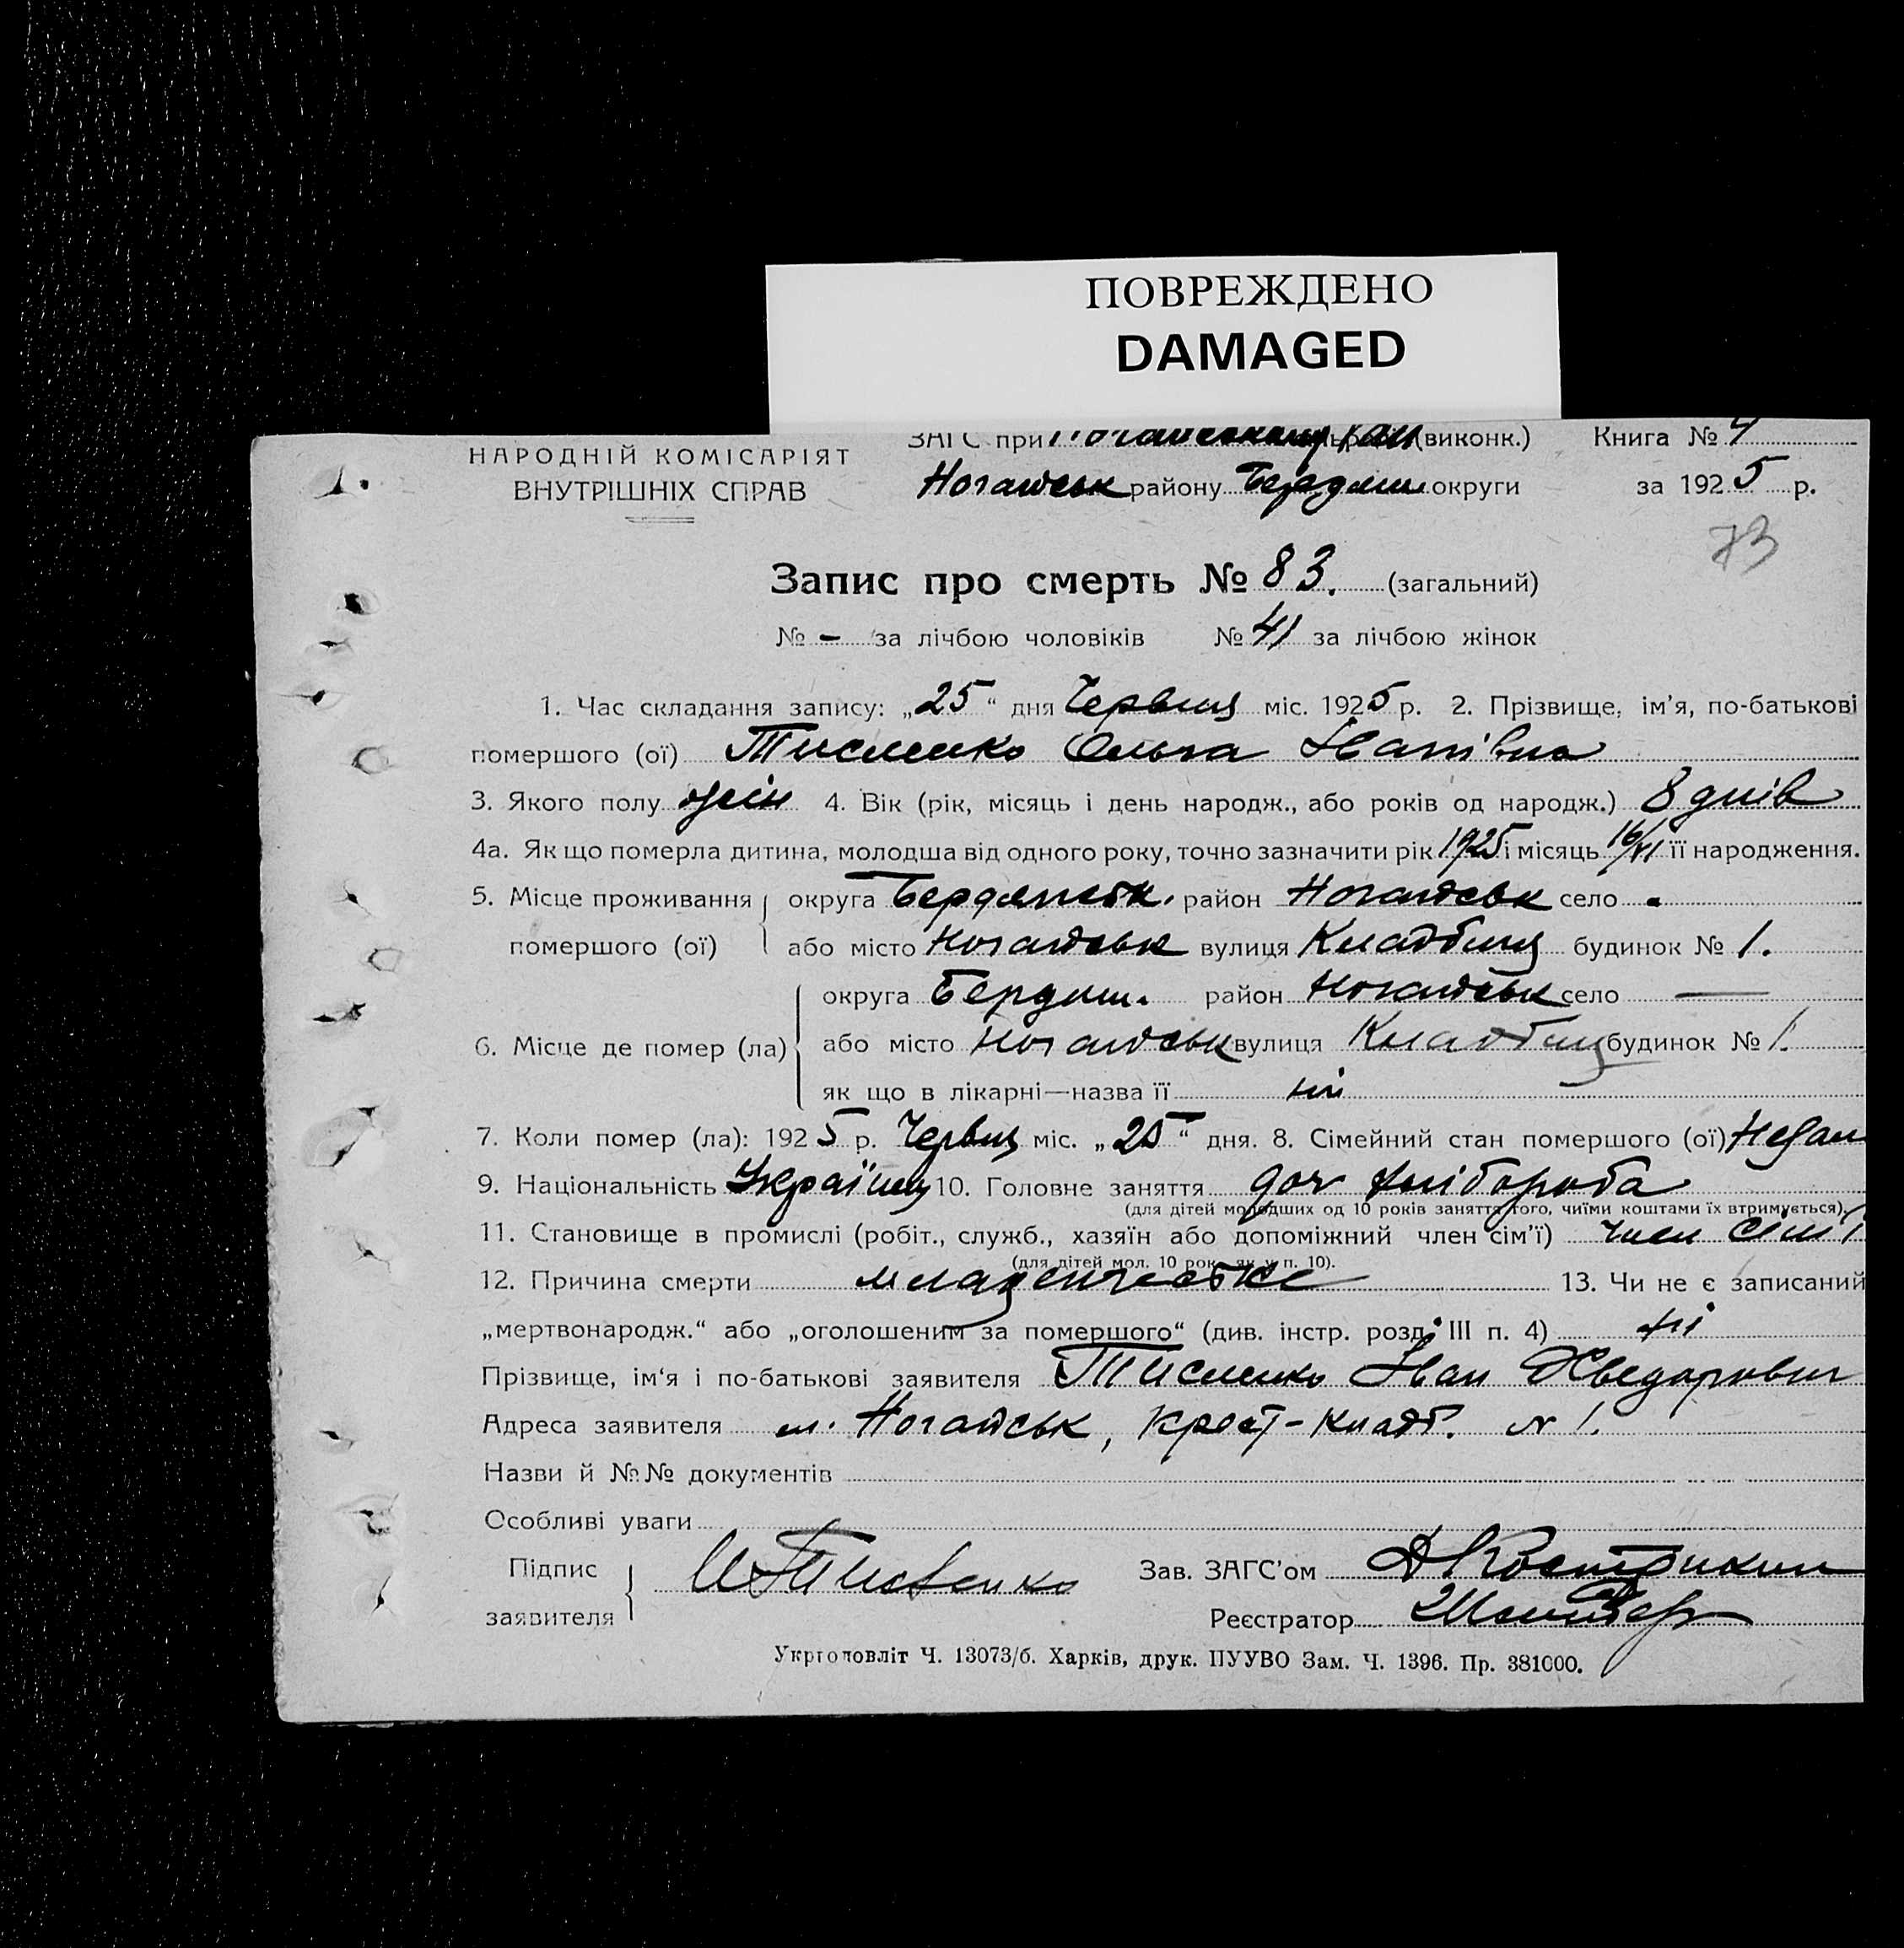 ПОВРЕЖДЕНО
DAMAGED
НАРОДНІЙ КОМІСАРІЯТ
ВНУТРІШНІХ СПРАВ
ЗАГС при Ногайському Рай (виконк.) Книга № 4
Ногайськ району Бердянш округи за 1925 р.
73
Запис про смерть № 83. (загальний)
№ - за лічбою чоловіків № 41 за лічбою жінок
1. Час складання запису: „25“ дня Червня міс. 1925 р. 2. Прізвище, ім'я, по-батькові
помершого (ої) Тисменко Ольга Іванівна
3. Якого полу жін 4. Вік (рік, місяць і день народж., або років од народж.) 8 днів
4а. Як що померла дитина, молодша від одного року, точно зазначити рік 1925 і місяць 16/VI її народження.
5. Місце проживання округа Бердянськ. район Ногайськ село
помершого (ої) або місто Ногайськ вулиця Кладбищ будинок № 1.
округа Бердянш. район Ногайськ село —
6. Місце де помер (ла) або місто Ногайськ вулиця Кладбищ будинок № 1.
як що в лікарні—назва її ні
7. Коли помер (ла): 1925 р. Червня міс. „25“ дня. 8. Сімейний стан помершого (ої)
9. Національність Україн 10. Головне заняття доч хлібороба
(для дітей молодших од 10 років заняття того, чиїми коштами їх втримується).
11. Становище в промислі (робіт., служб., хазяїн або допоміжний член сім'ї) член сім'ї
(для дітей мол. 10 рок. як у п. 10).
12. Причина смерти младенческе 13. Чи не є записаний
„мертвонародж.“ або „оголошеним за помершого“ (див. інстр. розд. III п. 4) ні
Прізвище, ім'я і по-батькові заявителя Тисменко Іван Хведорович
Адреса заявителя м. Ногайськ, Крест-Кладб. № 1.
Назви й №№ документів
Особливі уваги
Підпис
заявителя
Зав. ЗАГС'ом
Реєстратор
Укрголовліт Ч. 13073/б. Харків, друк. ПУУВО Зам. Ч. 1396. Пр. 381000.